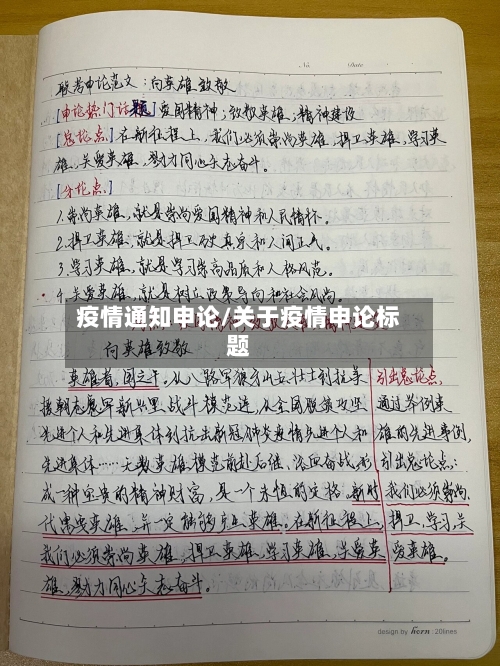 No.
Date
联考申论范文：向英雄致敬
[申论热门话题] 爱国精神，致敬英雄，精神建设
[总论点] 在新征程上，我们必须崇尚英雄，捍卫英雄，学习英
雄，关爱英雄，勠力同心矢志奋斗。
[分论点]
1.崇尚英雄，就是崇尚爱国精神和人民情怀。
2.捍卫英雄，就是捍卫历史真实和人间正气。
3.学习英雄，就是学习崇高品质和人格风范。
4.关爱英雄，就是树立政策导向和社会风尚。
疫情通知申论/关于疫情申论标
题
向英雄致敬
英雄者，国之干。从八路军狼牙山五壮士到抗美
援朝志愿军新兴里战斗模范连，从全国脱贫攻坚
先进个人和先进集体到抗击新冠肺炎疫情先进个人和
先进集体……无数英雄模范前赴后继、浴血奋战，书
成一种宝贵的精神财富，是一个永恒的定格。新时
代需要英雄，并一定能够产生英雄。在新征程上，
我们必须崇尚英雄，捍卫英雄，学习英雄，关爱英
雄，勠力同心矢志奋斗。
引出总论点，
通过举例英
雄的先进事例，
引出总论点：
我们必须崇尚、
捍卫、学习、关
爱英雄。
design by horn 20lines